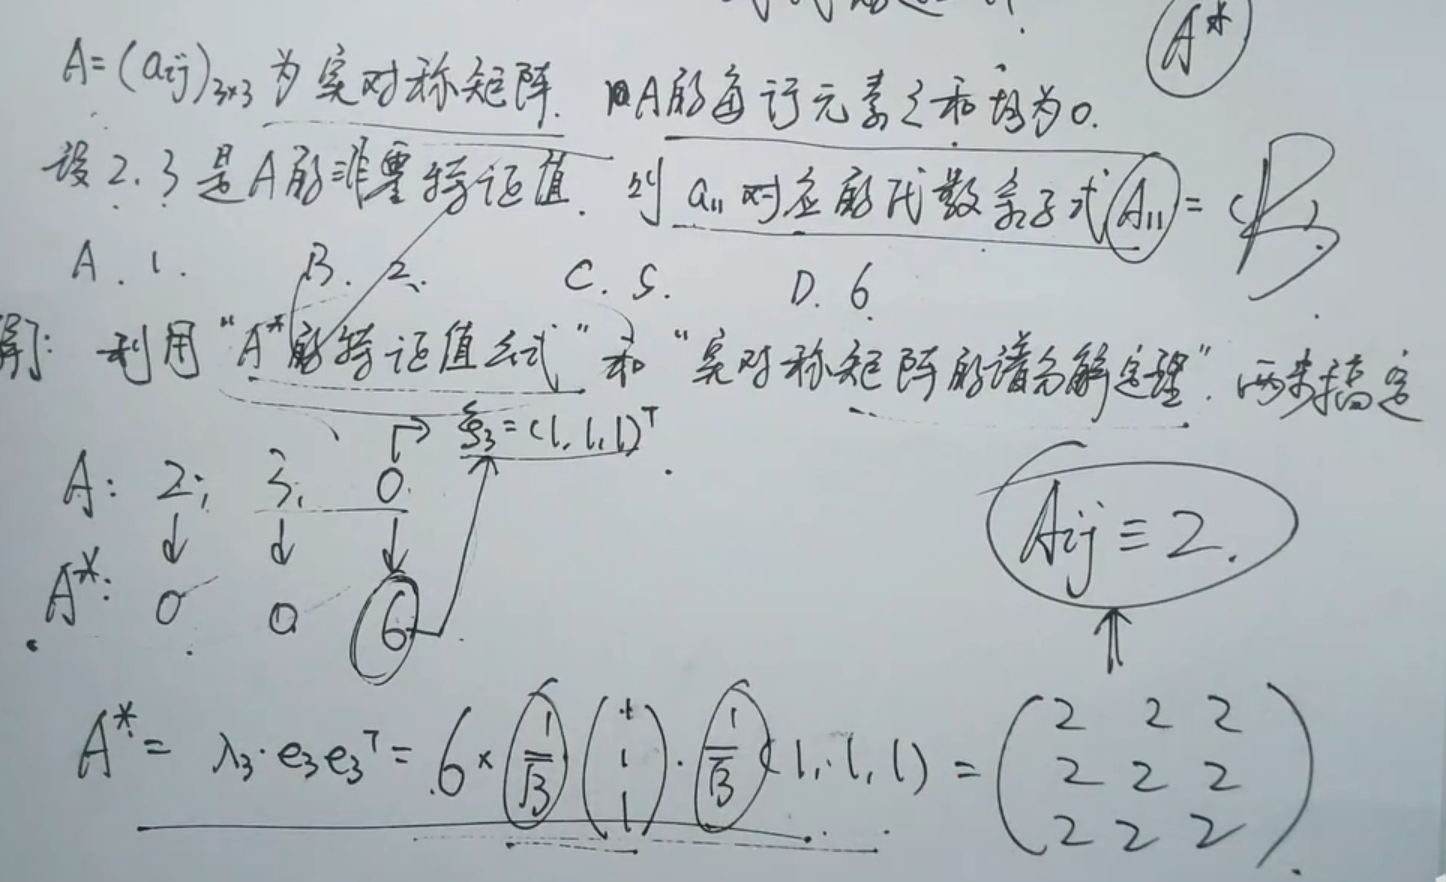 A*
A=(aij)3×3为实对称矩阵. A的每行元素之和均为0.
设2.3是A的非重特征值. 则a11对应的代数余子式A11=(B)
A.1. B.2. C.5. D.6
解: 利用"A*的特征值公式"和"实对称矩阵的谱分解定理".两步搞定
ξ3=(1,1,1)ᵀ
A: 2; 3, 0.
A*: 0 0 6
Aij≡2.
A*=λ3·e3e3ᵀ=6×1/√3(1 1 1)·1/√3(1,1,1)=(2 2 2
2 2 2
2 2 2)